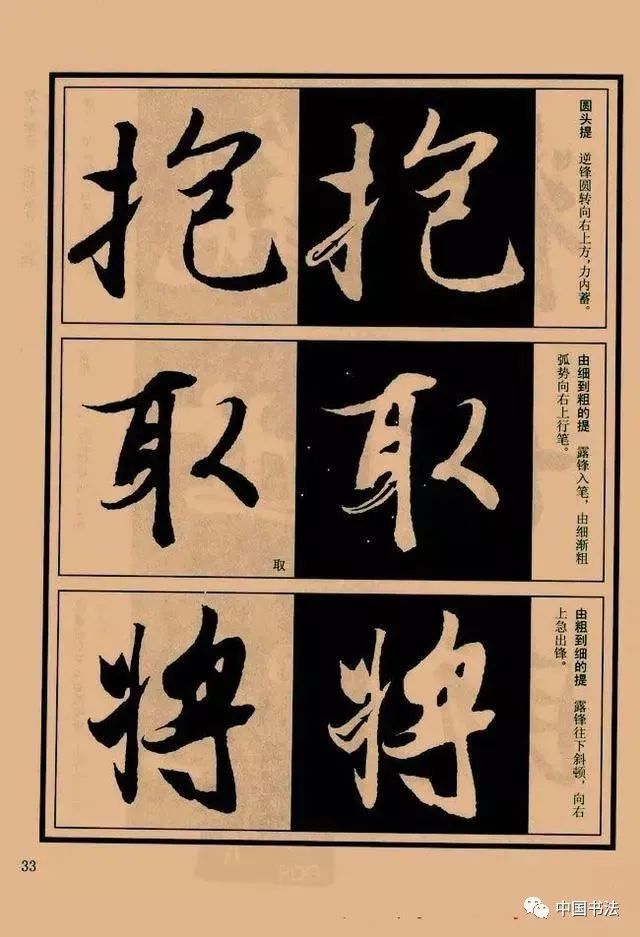 抱
抱
圆头提　逆锋圆转向右上方，力内蓄。
取
取
取
由细到粗的提　露锋入笔，由细渐粗
弧势向右上行笔。
将
将
由粗到细的提　露锋往下斜顿，向右
上急出锋。
33
PDG
中国书法